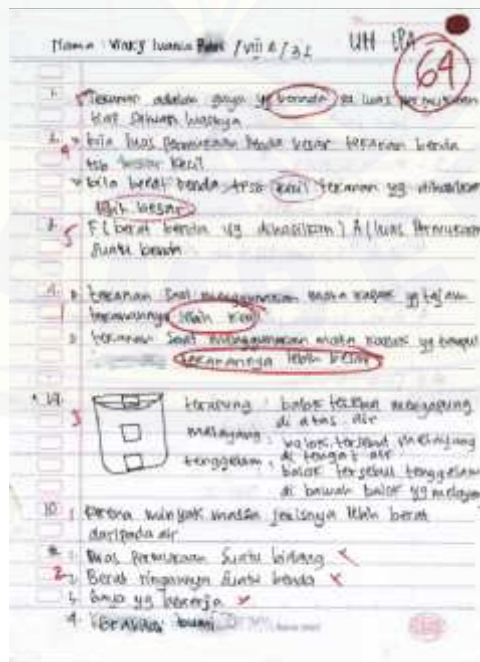 Nama : Vinky Iwania Putri / VIII A / 31 UH IPA
64
1. Tekanan adalah gaya yg bernada pa luas permukaan
tiap satuan luasnya
2. bila luas permukaan benda besar tekanan benda
tsb besar kecil
bila berat benda tsb kecil tekanan yg dihasilkan
lebih besar
3. F (berat benda yg dihasilkan) A (luas permukaan
suatu benda
4. tekanan saat menggunakan mata kapak yg tajam
tekanannya lebih kecil
tekanan saat menggunakan mata kapak yg tumpul
tekanannya lebih besar
terapung : balok tersebut mengapung
di atas air
melayang : balok tersebut melayang
di tengah air
tenggelam : balok tersebut tenggelam
di bawah balok yg melayang
10. karena minyak massa jenisnya lebih berat
daripada air
1. luas permukaan suatu bidang
2. Berat ringannya suatu benda
3. Gaya yg bekerja
4. bumi